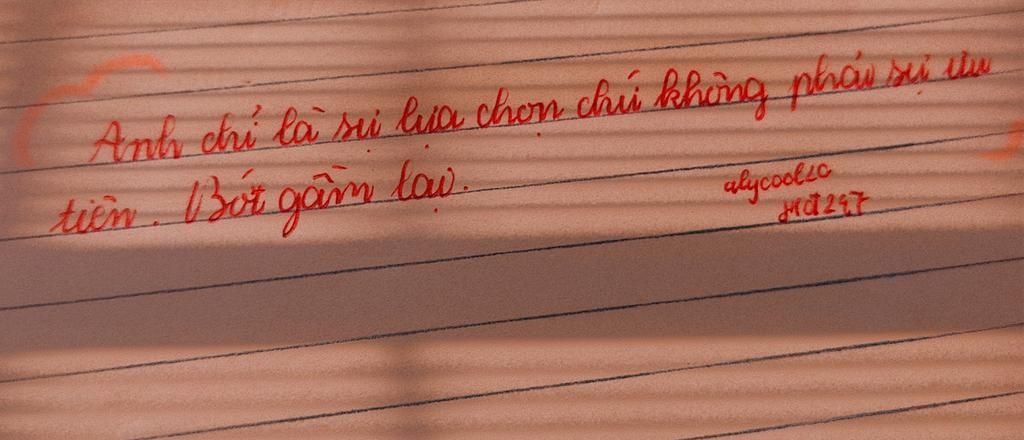 Anh chỉ là sự lựa chọn chứ không phải sự ưu
tiên. Bớt gầm lại.
alycoolzo